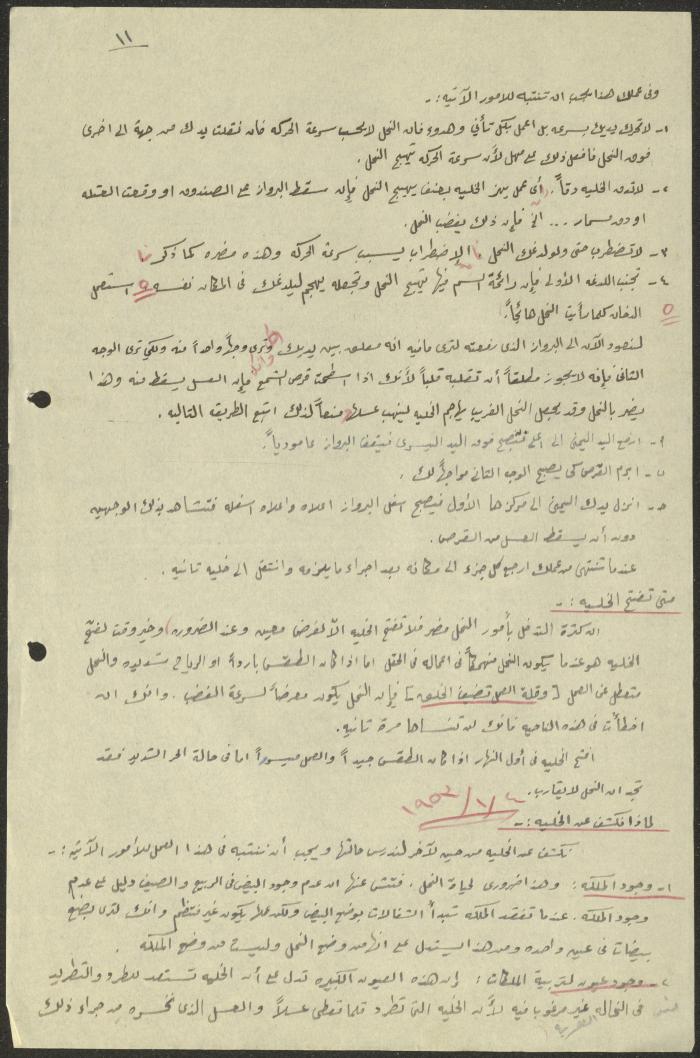 ١١
وفي عملك هذا يجب ان تنتبه للامور الآتيه :ـ
١ـ لا تحرك يديك بسرعه بل اعمل بكل تأني وهدوء فان النحل لا يحب سرعة الحركه فان نقلت يدك من جهة الى اخرى
فوق النحل فافعل ذلك على مهل لأن سرعة الحركه تهيج النحل .
٢ـ لا تدق الخليه دقاً . أي عمل يهز الخليه بعنف يهيج النحل فإن سقط البرواز على الصندوق او وقعت العتله
او دق مسمار ... الخ فإن ذلك يغضب النحل .
٣ـ لا تضطرب حتى ولو لدغك النحل . الإضطراب يسبب سرعة الحركه وهذه مضره كما ذكرنا
٤ـ تجنب اللدغه الأولى فإن رائحة السم فيها تهيج النحل وتجعله يهجم ليلدغك في المكان نفسه ٥ استعمل
٥ الدخان كلما رأيت النحل هائجاً .
لنعود الآن الى البرواز الذي رفعته لترى مافيه انه معلق بين يديك وترى وجهاً واحداً منه ولكي ترى الوجه
الثاني فإنه لا يجوز مطلقاً أن تقلبه قلباً لأنك اذا قرص الشمع فإن العسل يسقط منه وهذا
يضر بالنحل وقد يجعل النحل الغريب يهاجم الخليه لينهب عسلها منعاً لذلك اتبع الطريقه التاليه .
ارفع اليد اليمنى الى اعلى فتصبح فوق اليد اليسرى فيقف البرواز عاموديا .
ابرم القرص كي يصبح الوجه الثاني مواجهاً لك .
انزل يدك اليمنى الى مركزها الأول فيصبح اسفل البرواز اعلاه واعلاه اسفله فتشاهد بذلك الوجهين
دون أن يسقط العسل من القرص .
عندما تنتهي من عملك ارجع كل جزء الى مكانه بعد اجراء ما يلزمه وانتقل الى خليه ثانيه .
متى تفتح الخليه :ـ
ان كثرة التدخل بأمور النحل مضر فلا تفتح الخليه الّا لغرض معين وعند الضروره ) وخير وقت لفتح
الخليه هو عندما يكون النحل منهمكاً في اعماله في الحقل اما اذا كان الطقس بارداً او الرياح شديده والنحل
متعطل عن العمل [ وقلة العمل تضيق الخلق ] فإن النحل يكون معرضاً لسرعة الغضب . وانك ان
اخطأت في هذه الناحيه فانك لن تنساها مرة ثانيه .
افتح الخليه في أول النهار اذا كان الطقس جيداً والعمل ميسوراً اما في حالة الحر الشديد فقد
تجد ان النحل لا يقارب .
١٩٥٣/١/٤
لماذا نكشف عن الخليه :ـ
نكشف عن الخليه من حين لآخر لندرس حالتها ويجب أن ننتبه في هذا العمل للأمور الآتيه :ـ
١ـ وجود الملكه : وهذا ضروري لحياة النحل . فتش عنها ان عدم وجود البيض في الربيع والصيف دليل على عدم
وجود الملكه . عندما تفقد الملكه تبدأ الشغالات بوضع البيض ولكن عملها يكون غير منتظم وانك لترى بضع
بيضات في عين واحده ومن هذا يستدل على انها من وضع النحل وليست من وضع الملكه .
٢ـ وجود عيون لتربية الملكات : إن هذه العيون الكبيره تدل على أن الخليه تستعد للطرد والتطريد
في النحاله غير مرغوب فيه لأن الخليه التي تطرد قلما تعطي عسلاً والعسل الذي نخسره من جراء ذلك